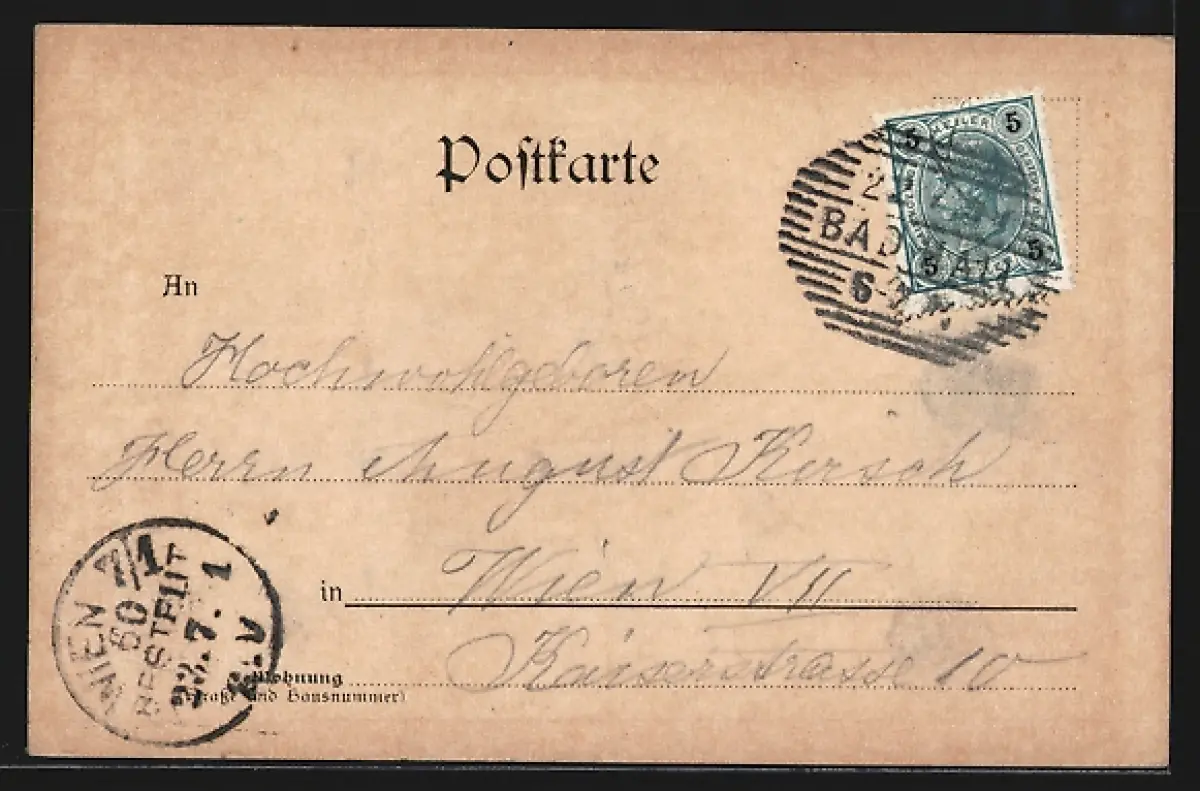 Postkarte
5 5
5 5
BAD HALL
6
An
Hochwohlgeboren
Herrn August Kersch
in Wien VII
Kaiserstrasse 10
Wohnung
(Straße und Hausnummer)
WIEN 7/1
60
BESTELLT
7. 1